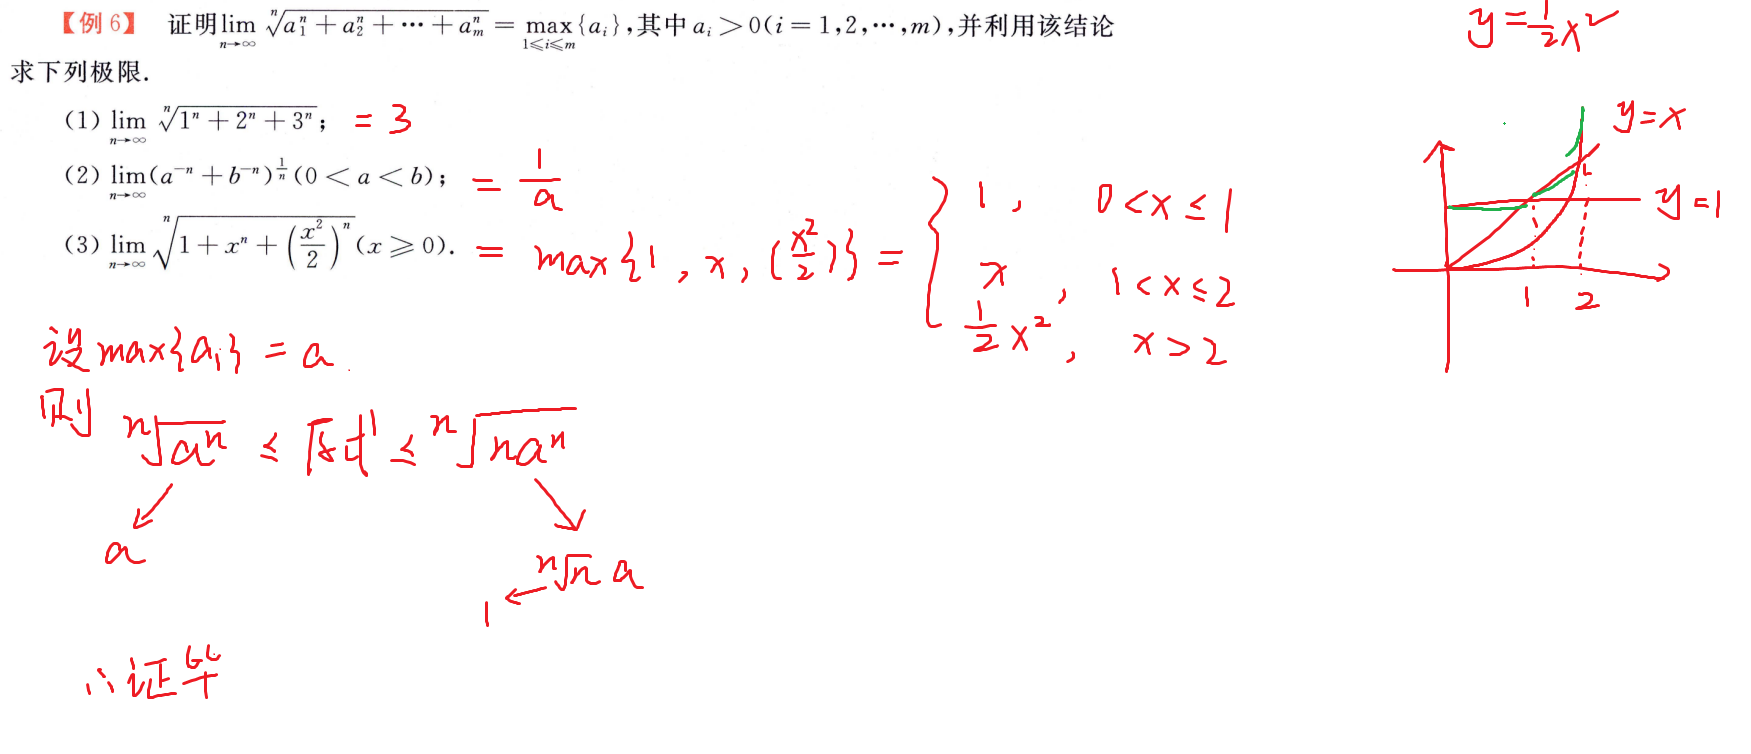 【例6】 证明 lim_{n→∞} ⁿ√(a₁ⁿ + a₂ⁿ + ⋯ + aₘⁿ) = max_{1≤i≤m}{aᵢ},其中 aᵢ > 0(i = 1,2,⋯,m),并利用该结论
求下列极限.
(1) lim_{n→∞} ⁿ√(1ⁿ + 2ⁿ + 3ⁿ); = 3
(2) lim_{n→∞} (a⁻ⁿ + b⁻ⁿ)^{1/n} (0 < a < b); = 1/a
(3) lim_{n→∞} ⁿ√(1 + xⁿ + (x²/2)ⁿ) (x ≥ 0). = max{1, x, (x²/2)} =
1, 0<x≤1
x, 1<x≤2
1/2 x², x>2
设 max{aᵢ} = a.
则 ⁿ√(aⁿ) ≤ 原式 ≤ ⁿ√(naⁿ)
a
ⁿ√n a
1
∴证毕
y = 1/2 x²
y = x
y = 1
1 2